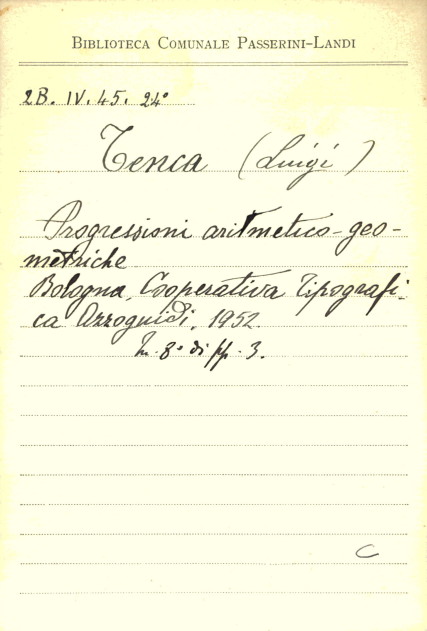 BIBLIOTECA COMUNALE PASSERINI-LANDI
2B. IV. 45. 24°
Tenca (Luigi)
Progressioni aritmetico-geo-
metriche
Bologna, Cooperativa Tipografi-
ca Azzoguidi, 1952.
In 8° di pp. 3.
C